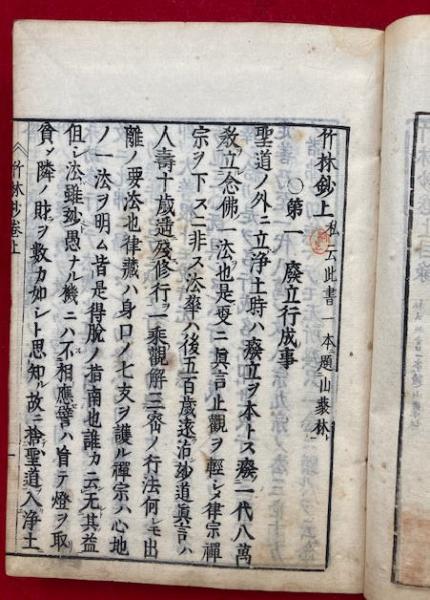 竹林鈔上 私云此書一本題山叢林
〇第一 廢立行成事
聖道ノ外ニ立浄土時ハ廢立ヲ本トス廢一代八萬
教立念佛一法也是更ニ眞言止觀ヲ輕シメ律宗禪
宗ヲ下スニ非ス法華ハ後五百歳遠沾妙道眞言ハ
人壽十歳遺殘修行一乘觀解三密ノ行法何レモ出
離ノ要法也律藏ハ身口ノ七支ヲ護ル禪宗ハ心地
ノ一法ヲ明ム皆是得脱ノ指南也誰カ云无其益
但シ法雖妙愚ナル機ニハ不相應譬ハ盲テ燈ヲ取
貧シテ隣ノ財ヲ數カ如シト思知ル故ニ捨聖道入浄土
竹林鈔卷上